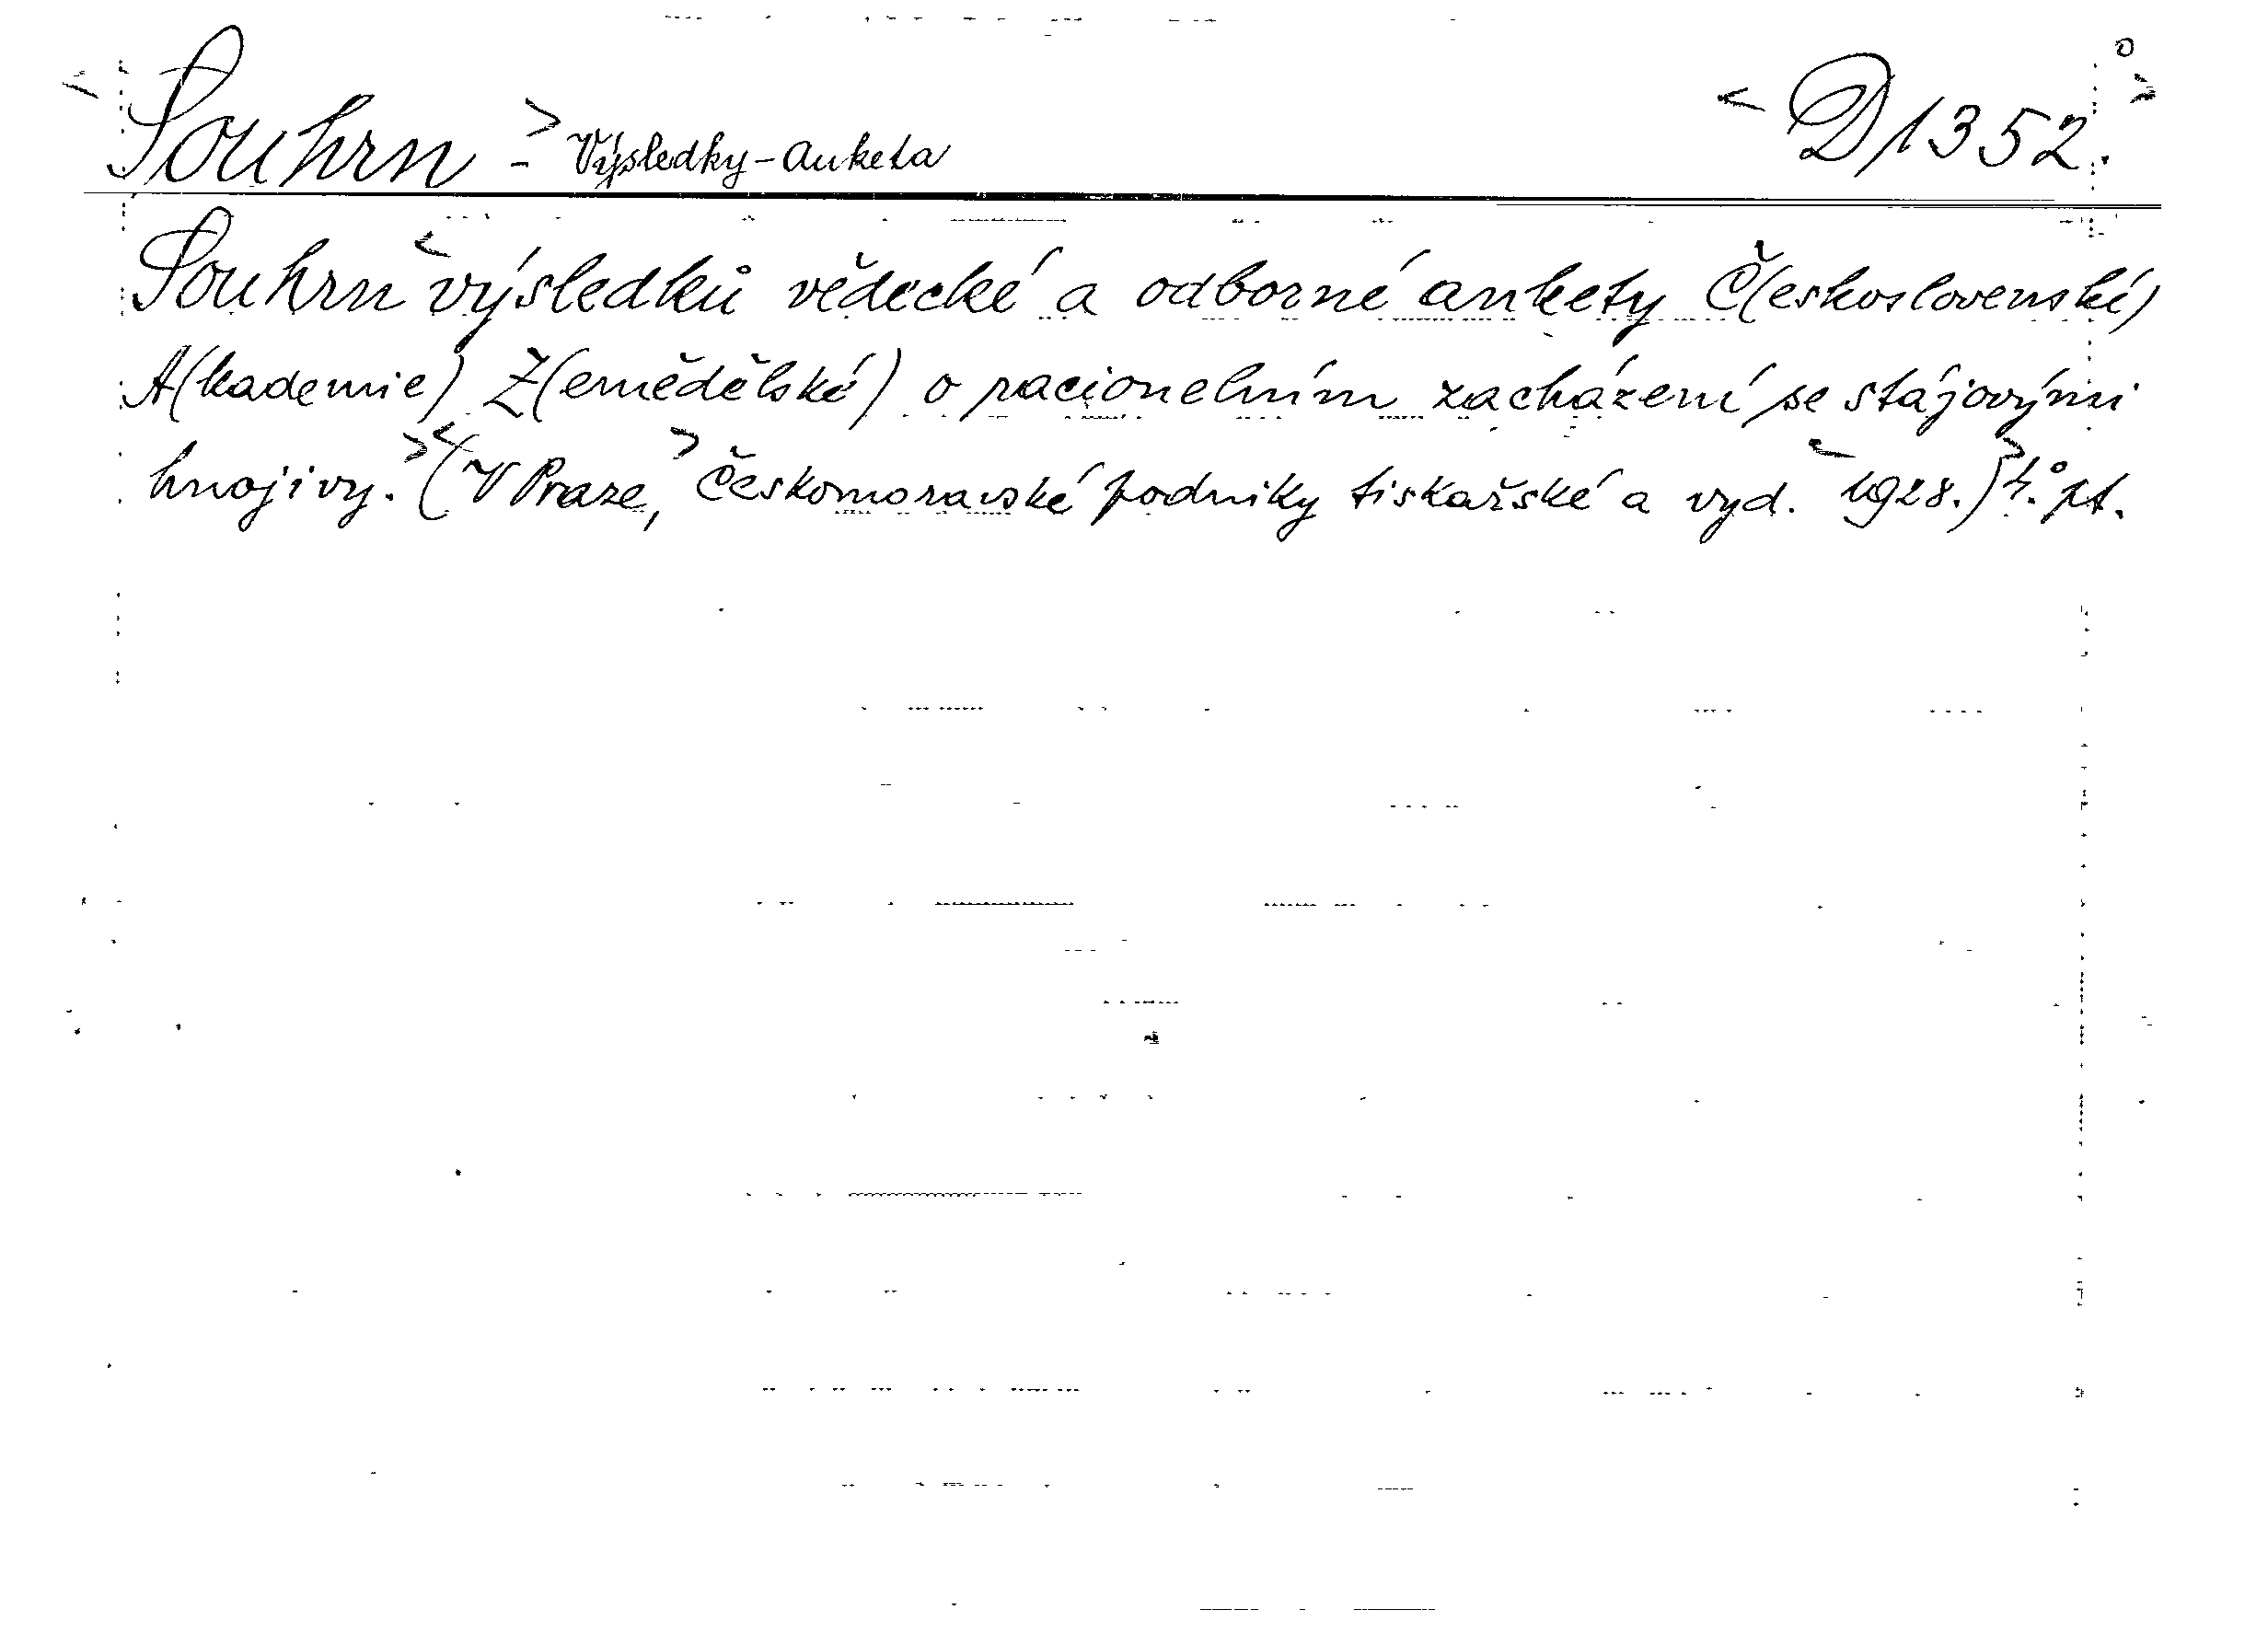 Souhrn - Výsledky - Anketa D 1352.
Souhrn výsledků vědecké a odborné ankety Č(eskoslovenské)
A(kademie) Z(emědělské) o racionelním zacházení se stájovými
hnojivy. (V Praze, Českomoravské podniky tiskařské a vyd. 1928.) 4.° pt.